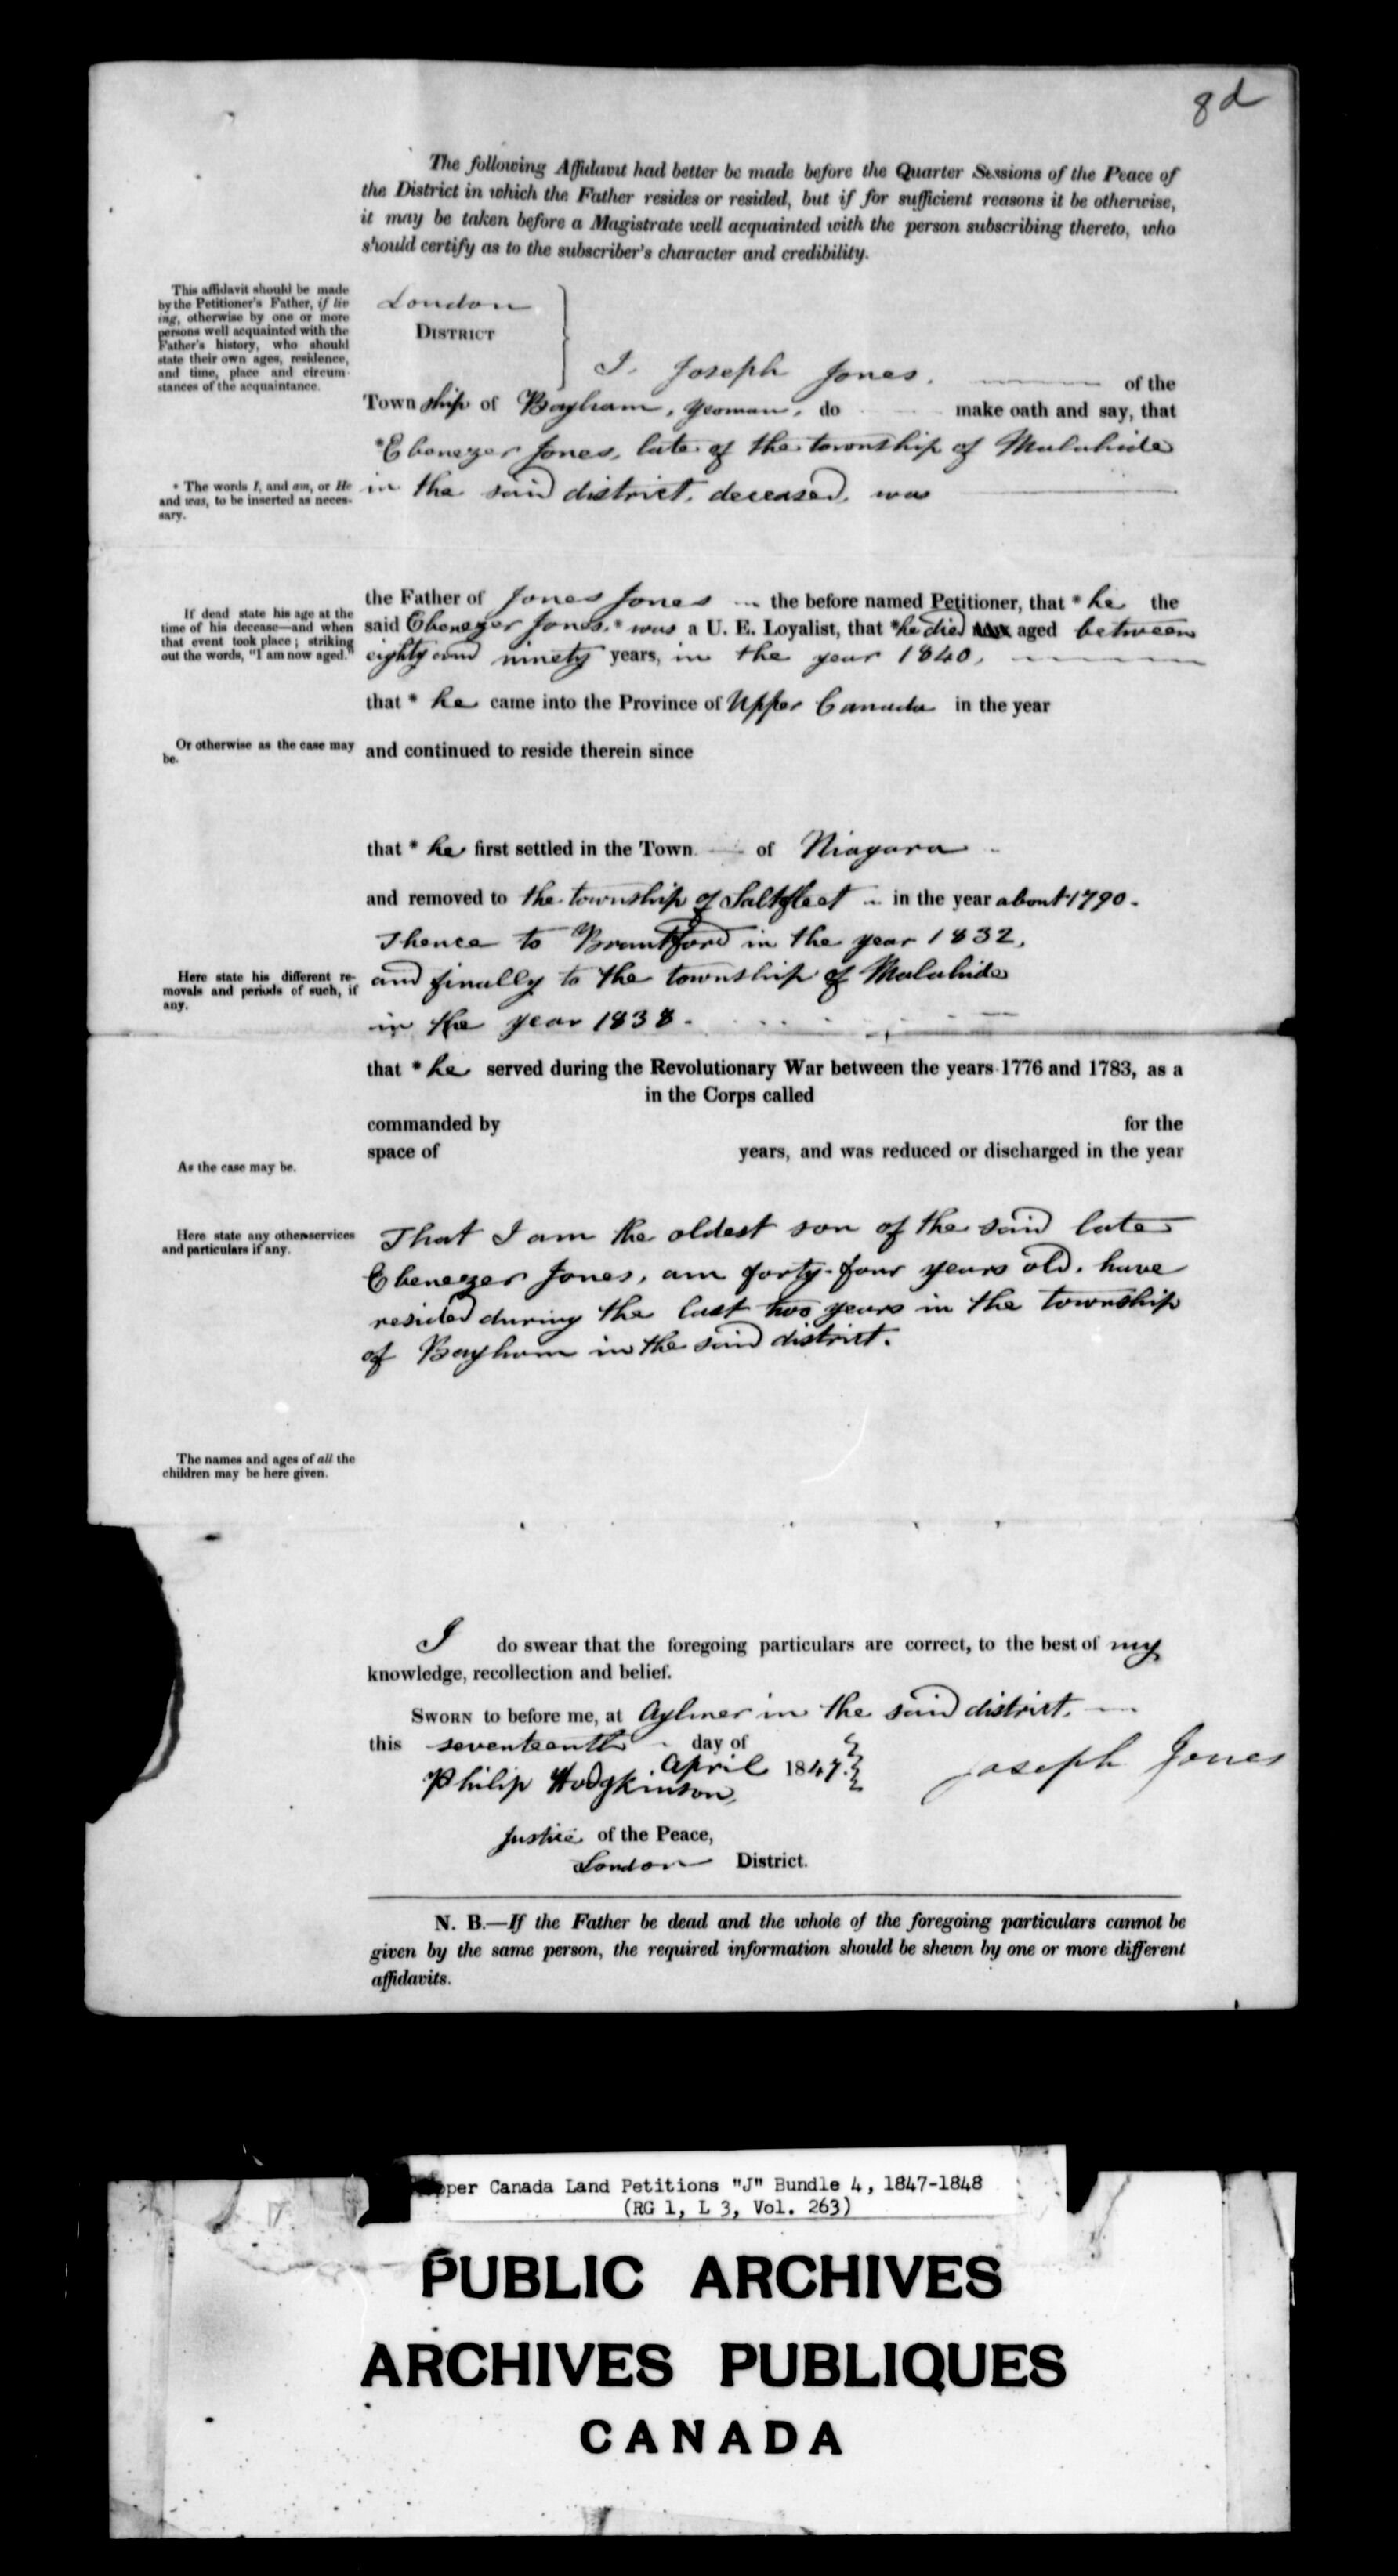 8d
The following Affidavit had better be made before the Quarter Sessions of the Peace of
the District in which the Father resides or resided, but if for sufficient reasons it be otherwise,
it may be taken before a Magistrate well acquainted with the person subscribing thereto, who
should certify as to the subscriber's character and credibility.
This affidavit should be made
by the Petitioner's Father, if liv
ing, otherwise by one or more
persons well acquainted with the
Father's history, who should
state their own ages, residence,
and time, place and circum-
stances of the acquaintance.
London
DISTRICT
I. Joseph Jones. of the
Township of Bayham, yeoman, do make oath and say, that
*Ebenezer Jones, late of the township of Malahide
* The words I, and am, or He
and was, to be inserted as neces-
sary.
in the said district, deceased, was
the Father of Jones Jones the before named Petitioner, that * he the
If dead state his age at the
time of his decease—and when
that event took place; striking
out the words, "I am now aged."
said Ebenezer Jones,* was a U. E. Loyalist, that *he died aged between
eighty and ninety years, in the year 1840,
that * he came into the Province of Upper Canada in the year
Or otherwise as the case may
be.
and continued to reside therein since
that * he first settled in the Town of Niagara
and removed to the township of Saltfleet in the year about 1790.
Thence to Brantford in the year 1832,
Here state his different re-
movals and periods of such, if
any.
and finally to the township of Malahide
in the year 1838.
that * he served during the Revolutionary War between the years 1776 and 1783, as a
in the Corps called
commanded by for the
space of years, and was reduced or discharged in the year
As the case may be.
Here state any other services
and particulars if any.
That I am the oldest son of the said late
Ebenezer Jones, am forty-four years old, have
resided during the last two years in the township
of Bayham in the said district.
The names and ages of all the
children may be here given.
I do swear that the foregoing particulars are correct, to the best of my
knowledge, recollection and belief.
SWORN to before me, at Aylmer in the said district,
this seventeenth day of
April 1847.
Philip Hodgkinson,
Joseph Jones
Justice of the Peace,
London District.
N. B.—If the Father be dead and the whole of the foregoing particulars cannot be
given by the same person, the required information should be shewn by one or more different
affidavits.
pper Canada Land Petitions "J" Bundle 4, 1847-1848
(RG 1, L 3, Vol. 263)
PUBLIC ARCHIVES
ARCHIVES PUBLIQUES
CANADA